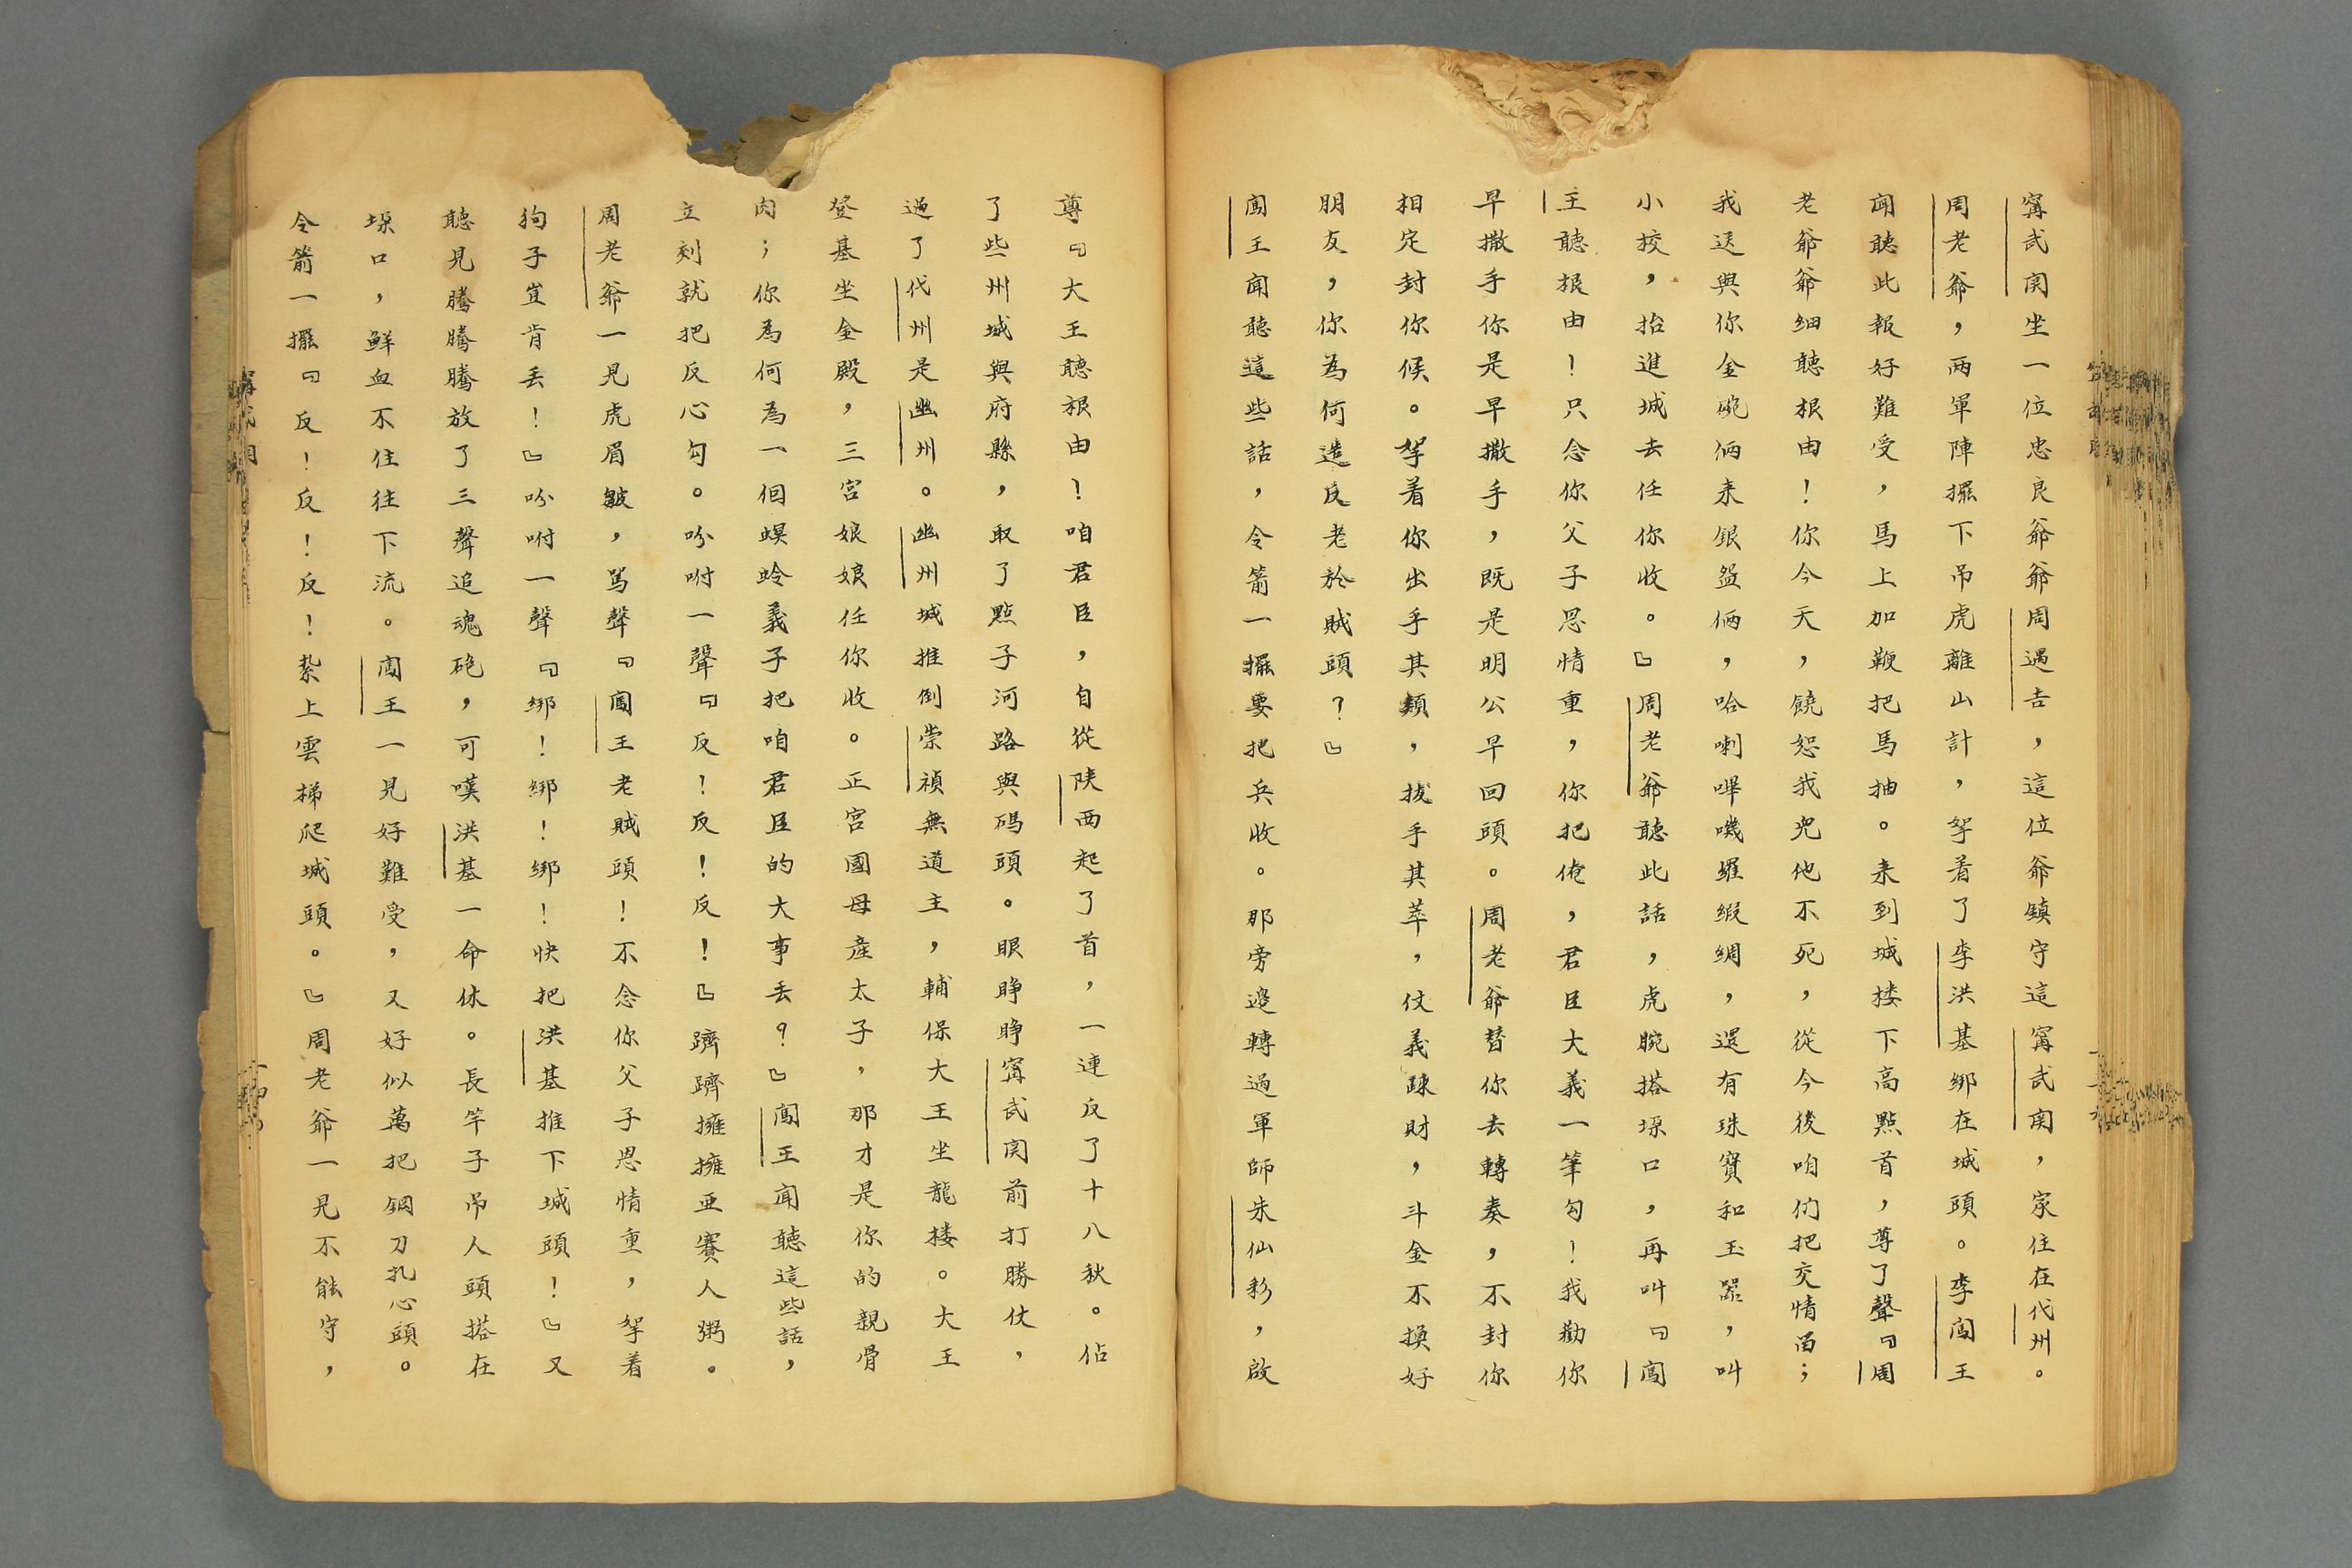 寗武関坐一位忠良爺爺周遇吉，這位爺鎮守這寗武関，家住在代州。
周老爺，两軍陣擺下吊虎離山計，拏着了李洪基綁在城頭。李闖王
闻聽此報好難受，馬上加鞭把馬抽。来到城楼下高點首，尊了聲『周
老爺爺细聽根由！你今天，饒恕我児他不死，從今後咱们把交情畄；
我送與你金碗俩来銀盌俩，哈喇嗶嘰羅緞綢，還有珠寶和玉器，叫
小挍，抬進城去任你收。』周老爺聽此話，虎腕搭垜口，再叫『闖
王聽根由！只念你父子恩情重，你把俺，君臣大義一筆勾！我勸你
早撒手你是早撒手，既是明公早回頭。周老爺替你去轉奏，不封你
相定封你候。拏着你出乎其類，拔乎其萃，仗義踈財，斗金不换好
朋友，你為何造反老於賊頭？』
闖王闻聽這些話，令箭一擺要把兵收。那旁邉轉過軍師朱仙移，啟
尊『大王聽根由！咱君臣，自從陕西起了首，一連反了十八秋。佔
了些州城與府縣，取了點子河路與碼頭。眼睁睁寗武関前打勝仗，
過了代州是幽州。幽州城推倒崇禎無道主，輔保大王坐龍楼。大王
登基坐金殿，三宫娘娘任你收。正宫國母産太子，那才是你的親骨
肉；你為何為一個螟蛉義子把咱君臣的大事丢？』闖王闻聽這些話，
立刻就把反心勾。吩咐一聲『反！反！反！』躋躋擁擁亚賽人粥。
周老爺一見虎眉皺，罵聲『闖王老賊頭！不念你父子恩情重，拏着
狗子豈肯丢！』吩咐一聲『綁！綁！綁！快把洪基推下城頭！』又
聽見騰騰騰放了三聲追魂砲，可嘆洪基一命休。長竿子吊人頭搭在
垜口，鮮血不住往下流。闖王一見好難受，又好似萬把鋼刀扎心頭。
令箭一擺『反！反！反！紮上雲梯爬城頭。』周老爺一見不能守，